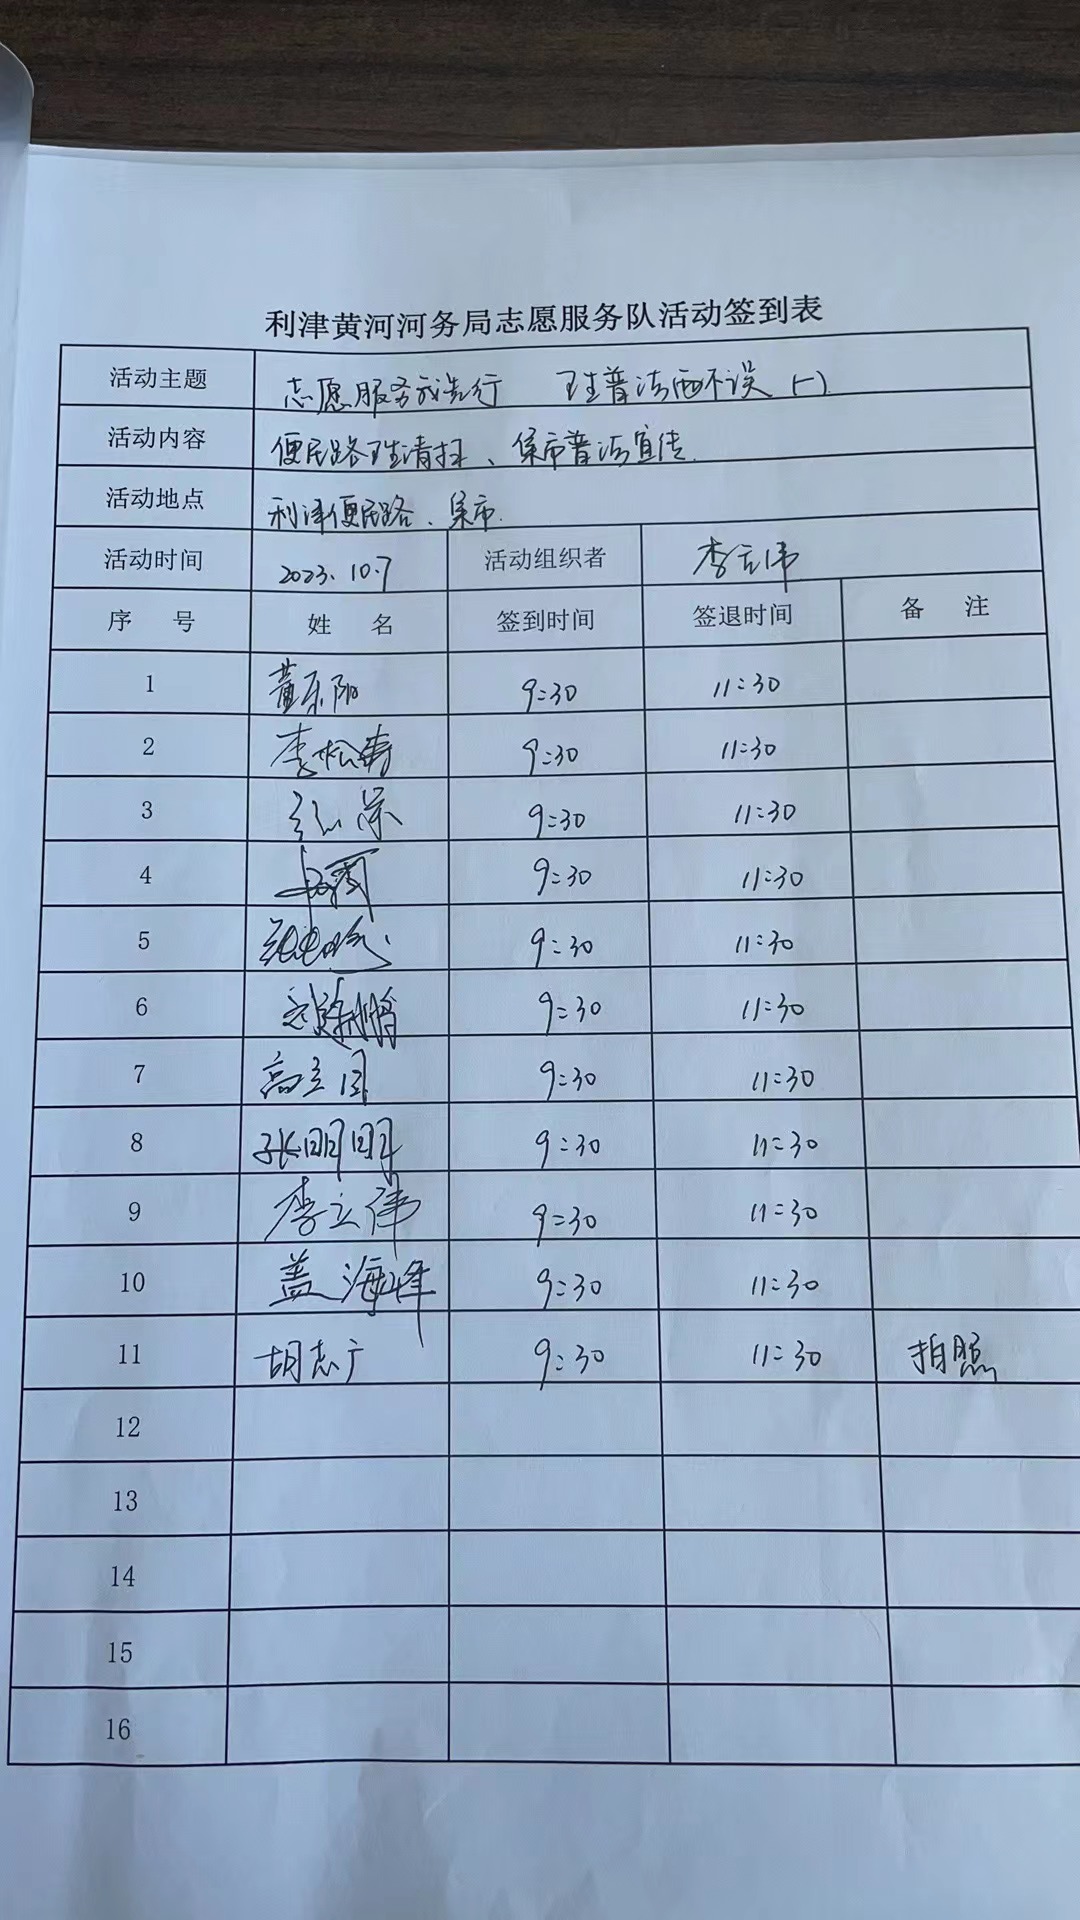 利津黄河河务局志愿服务队活动签到表
活动主题 志愿服务我先行 环境普法两不误 (一)
活动内容 便民路环境清扫、集市普法宣传.
活动地点 利津便民路、集市.
活动时间 2023.10.7 活动组织者 李立伟
序 号 姓 名 签到时间 签退时间 备 注
1 董乐阳 9:30 11:30
2 李松涛 9:30 11:30
3 9:30 11:30
4 9:30 11:30
5 9:30 11:30
6 9:30 11:30
7 高立国 9:30 11:30
8 张明明 9:30 11:30
9 李立伟 9:30 11:30
10 盖海峰 9:30 11:30
11 胡志广 9:30 11:30 拍照
12
13
14
15
16